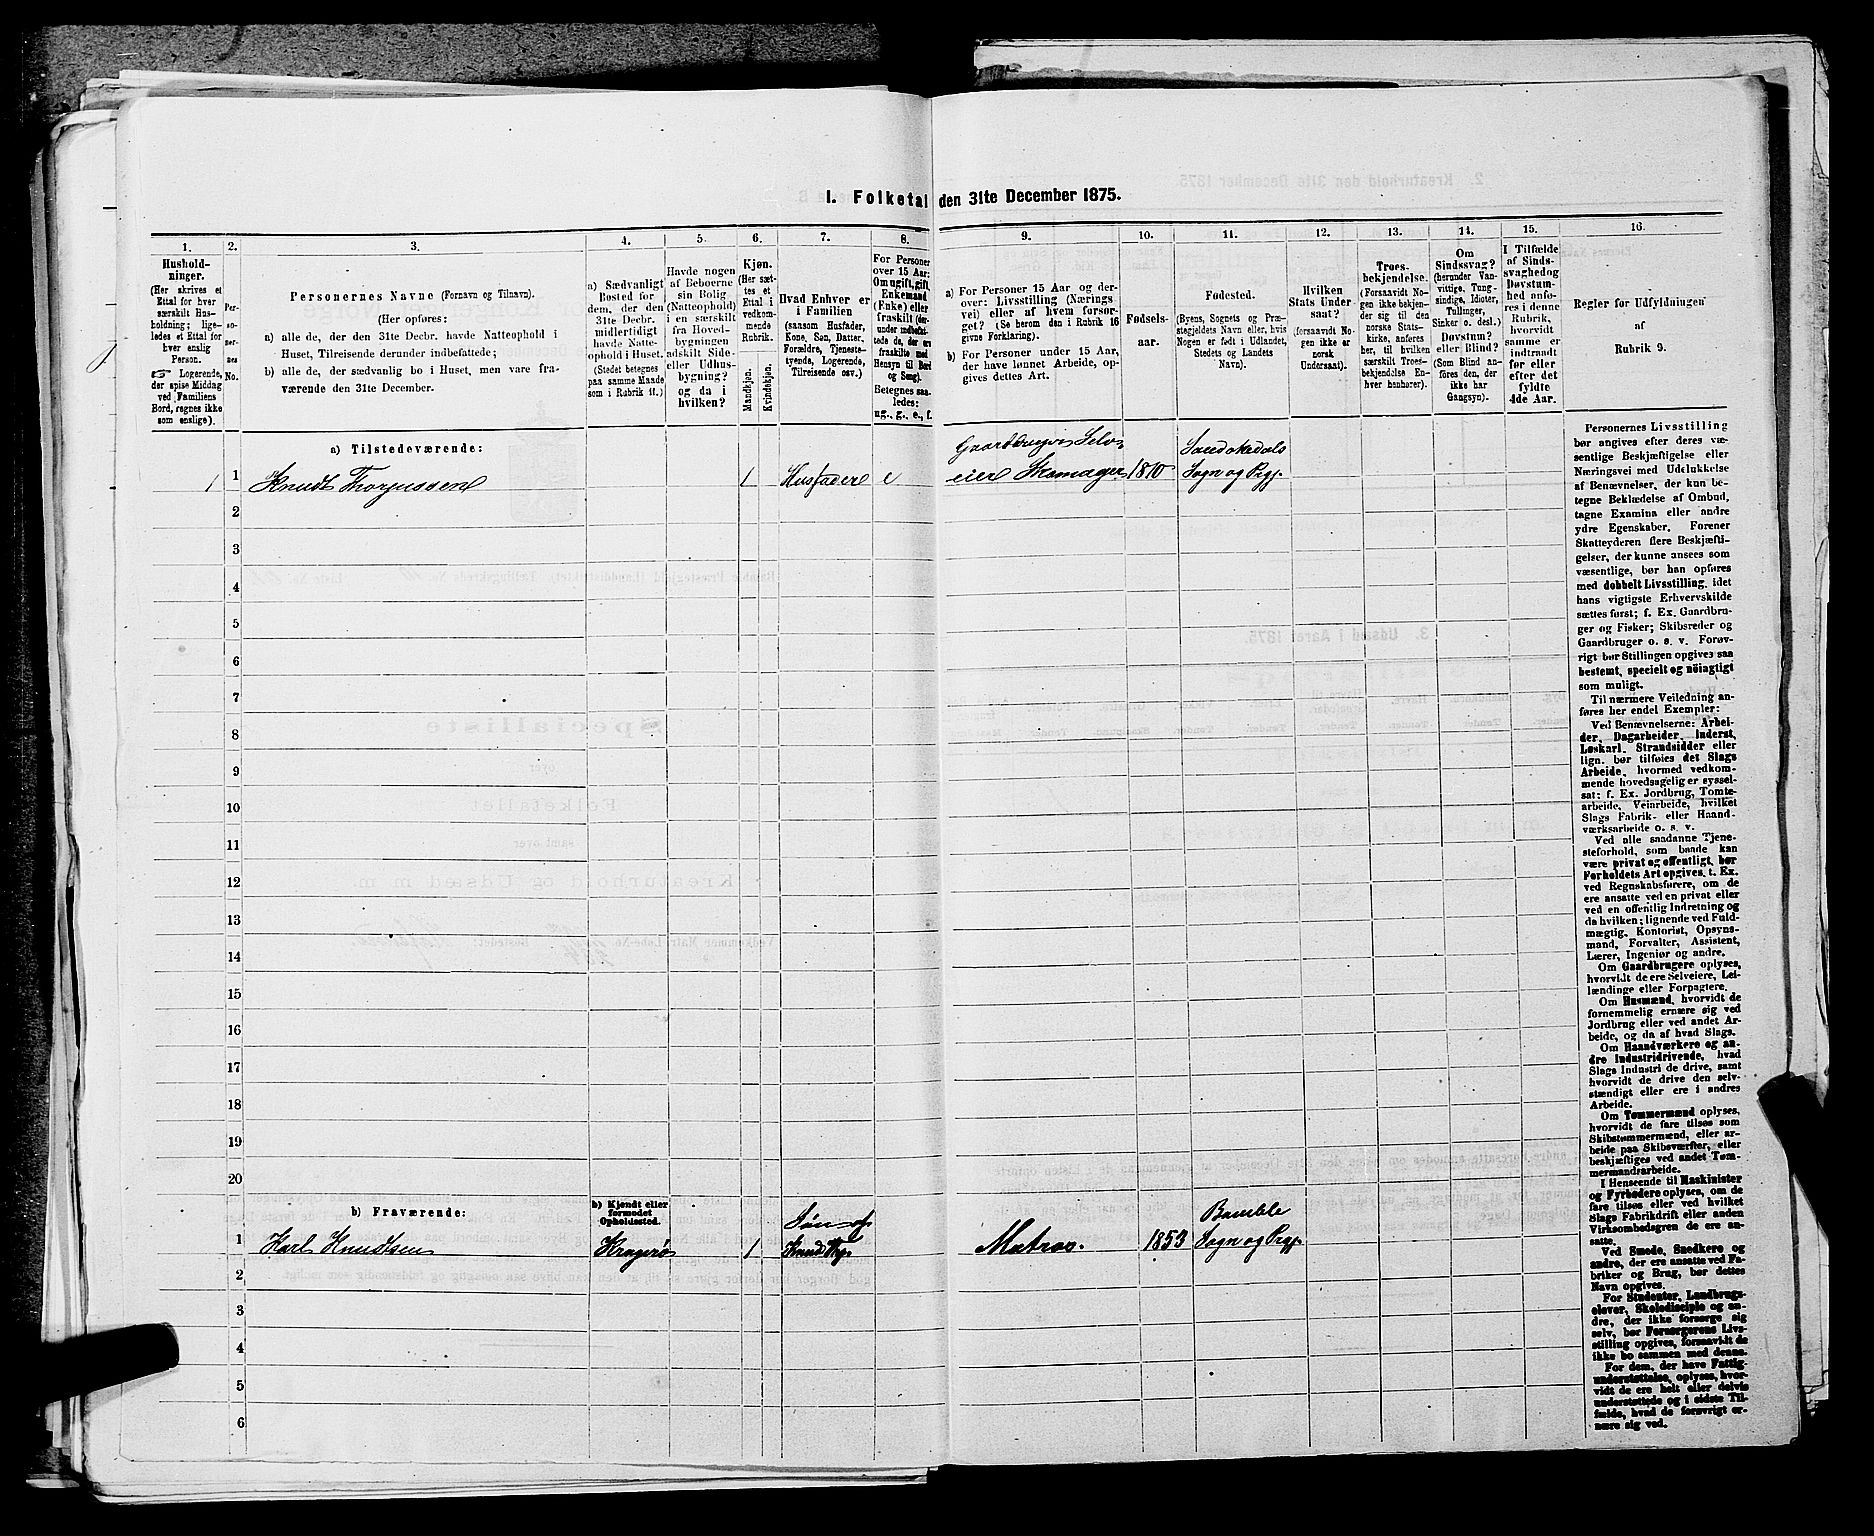 I. Folketal den 31te December 1875.
1.
2.
3.
4.
5.
6.
7.
8.
9.
10.
11.
12.
13.
14.
15.
16.
Hushold-
ninger.
(Her skrives et
Ettal for hver
særskilt Hus-
holdning; lige-
ledes et Ettal for
hver enslig
Person.
☞ Logerende,
der spise Middag
ved Familiens
Bord, regnes ikke
som enslige).
Per-
so-
ner-
nes
No.
Personernes Navne (Fornavn og Tilnavn).
(Her opføres:
a) alle de, der den 31te Decbr. havde Natteophold i
Huset, Tilreisende derunder indbefattede;
b) alle de, der sædvanlig bo i Huset, men vare fra-
værende den 31te December.
a) Sædvanligt
Bosted for
dem, der den
31te Decbr.
midlertidigt
havde Natte-
ophold i Huset.
(Stedet betegnes
paa samme Maade
som i Rubrik 11.)
Havde nogen
af Beboerne
sin Bolig
(Natteophold)
i en særskilt
fra Hoved-
bygningen
adskilt Side-
eller Udhus-
bygning?
og da i
hvilken?
Kjøn.
(Her sæt-
tes et
Ettal i
vedkom-
mende
Rubrik.
Mandkjøn.
Kvindekjøn.
Hvad Enhver er
i Familien
(saasom Husfader,
Kone, Søn, Datter,
Forældre, Tjeneste-
tyende, Logerende,
Tilreisende osv.)
For Personer
over 15 Aar:
Om ugift, gift,
Enkemand
(Enke) eller
fraskilt (der-
under indbefat-
tede de, der ere
fraskilte med
Hensyn til Bord
og Seng).
Betegnes saa-
ledes:
ug., g., e., f.
a) For Personer 15 Aar og der-
over: Livsstilling (Nærings-
vei) eller af hvem forsør-
get? (Se herom den i Rubrik 16
givne Forklaring).
b) For Personer under 15 Aar,
der have lønnet Arbeide, op-
gives dettes Art.
Fødsels-
aar.
Fødested.
(Byens, Sognets og Præ-
stegjeldets Navn eller, hvis
Nogen er født i Udlandet,
Stedets og Landets
Navn).
Hvilken
Stats Under-
saat?
(forsaavidt No-
gen ikke er
norsk
Undersaat).
Troes-
bekjendelse.
(Forsaavidt No-
gen ikke bekjen-
der sig til den
norske Stats-
kirke, anføres
her, til hvilken
særskilt Troes-
bekjendelse En-
hver henhører).
Om
Sindssvag?
(herunder Van-
vittige, Tung-
sindige, Idioter,
Tullinger,
Sinker o. desl.)
Døvstum?
eller Blind?
(Som Blind an-
føres den, der
ikke har
Gangsyn).
I Tilfælde
af Sinds-
svaghed og
Døvstum-
hed anfø-
res i denne
Rubrik,
hvorvidt
samme er
indtraadt
før eller
efter det
fyldte
4de Aar.
Regler for Udfyldningen
af
Rubrik 9.
a) Tilstedeværende:
1 1 Knudt Thorgussen 1 Husfader e Gaardbruger Selv-
eier Skomager 1810 Sandøkedals
Sogn og Prgj.
2
3
4
5
6
7
8
9
10
11
12
13
14
15
16
17
18
19
20
b) Fraværende:
b) Kjendt eller
formodet
Opholdssted.
1 Karl Knudtsen Kragerø 1 Søn af
Knud Matros. 1853 Bamble
Sogn og Prgj.
2
3
4
5
6
Personernes Livsstilling
bør angives efter deres væ-
sentlige Beskjæftigelse eller
Næringsvei med Udelukkelse
af Benævnelser, der kun be-
tegne Beklædelse af Ombud,
tagne Examina eller andre
ydre Egenskaber. Forener
Skatteyderen flere Beskjæfti-
gelser, der kunne ansees som
væsentlige, bør han opføres
med dobbelt Livsstilling, idet
hans vigtigste Erhvervskilde
sættes først; f. Ex. Gaardbru-
ger og Fisker; Skibsreder og
Gaardbruger o. s. v. Forøv-
rigt bør Stillingen opgives saa
bestemt, specielt og nøiagtigt
som muligt.
Til nærmere Veiledning an-
føres her endel Exempler:
Ved Benævnelserne: Arbei-
der, Dagarbeider, Inderst,
Løskarl, Strandsidder eller
lign. bør tilføies det Slags
Arbeide, hvormed vedkom-
mende hovedsagelig er syssel-
sat; f. Ex. Jordbrug, Tomte-
arbeide, Veiarbeide, hvilket
Slags Fabrik- eller Haand-
værksarbeide o. s. v.
Ved alle saadanne Tjene-
steforhold, som baade kan
være privat og offentligt, bør
Forholdets Art opgives, t. Ex.
ved Regnskabsførere, om de
ere ansatte ved en privat eller
ved en offentlig Indretning og
da hvilken; lignende ved Fuld-
mægtig, Kontorist, Opsyns-
mand, Forvalter, Assistent,
Lærer, Ingeniør og andre.
Om Gaardbrugere oplyses,
hvorvidt de ere Selveiere, Lei-
lændinge eller Forpagtere.
Om Husmænd, hvorvidt de
fornemmelig ernære sig ved
Jordbrug eller ved andet Ar-
beide, og da af hvad Slags.
Om Haandværkere og an-
dre Industridrivende, hvad
Slags Industri de drive, samt
hvorvidt de drive den selv-
stændigt eller ere i andres
Arbeide.
Om Tømmermænd oplyses,
hvorvidt de fare tilsøs som
Skibstømmermænd, eller ar-
beide paa Skibsværfter, eller
beskjæftiges ved andet Tøm-
mermandsarbeide.
I Henseende til Maskinister
og Fyrbødere oplyses, om de
fare tilsøs eller ved hvilket
Slags Fabrikdrift eller anden
Virksomhedsgren de ere an-
satte.
Ved Smede, Snedkere og
andre, der ere ansatte ved Fa-
briker og Brug, bør dettes
Navn opgives.
For Studenter, Landbrugs-
elever, Skoledisciple og an-
dre, der ikke forsørge sig
selv, bør Forsørgerens Livs-
stilling opgives, forsaavidt de
ikke bo sammen med denne.
For dem, der have Fattig-
understøttelse, oplyses, hvor-
vidt de ere helt eller delvis
understøttede og i sidste Til-
fælde, hvad de forøvrigt er-
nære sig ved.